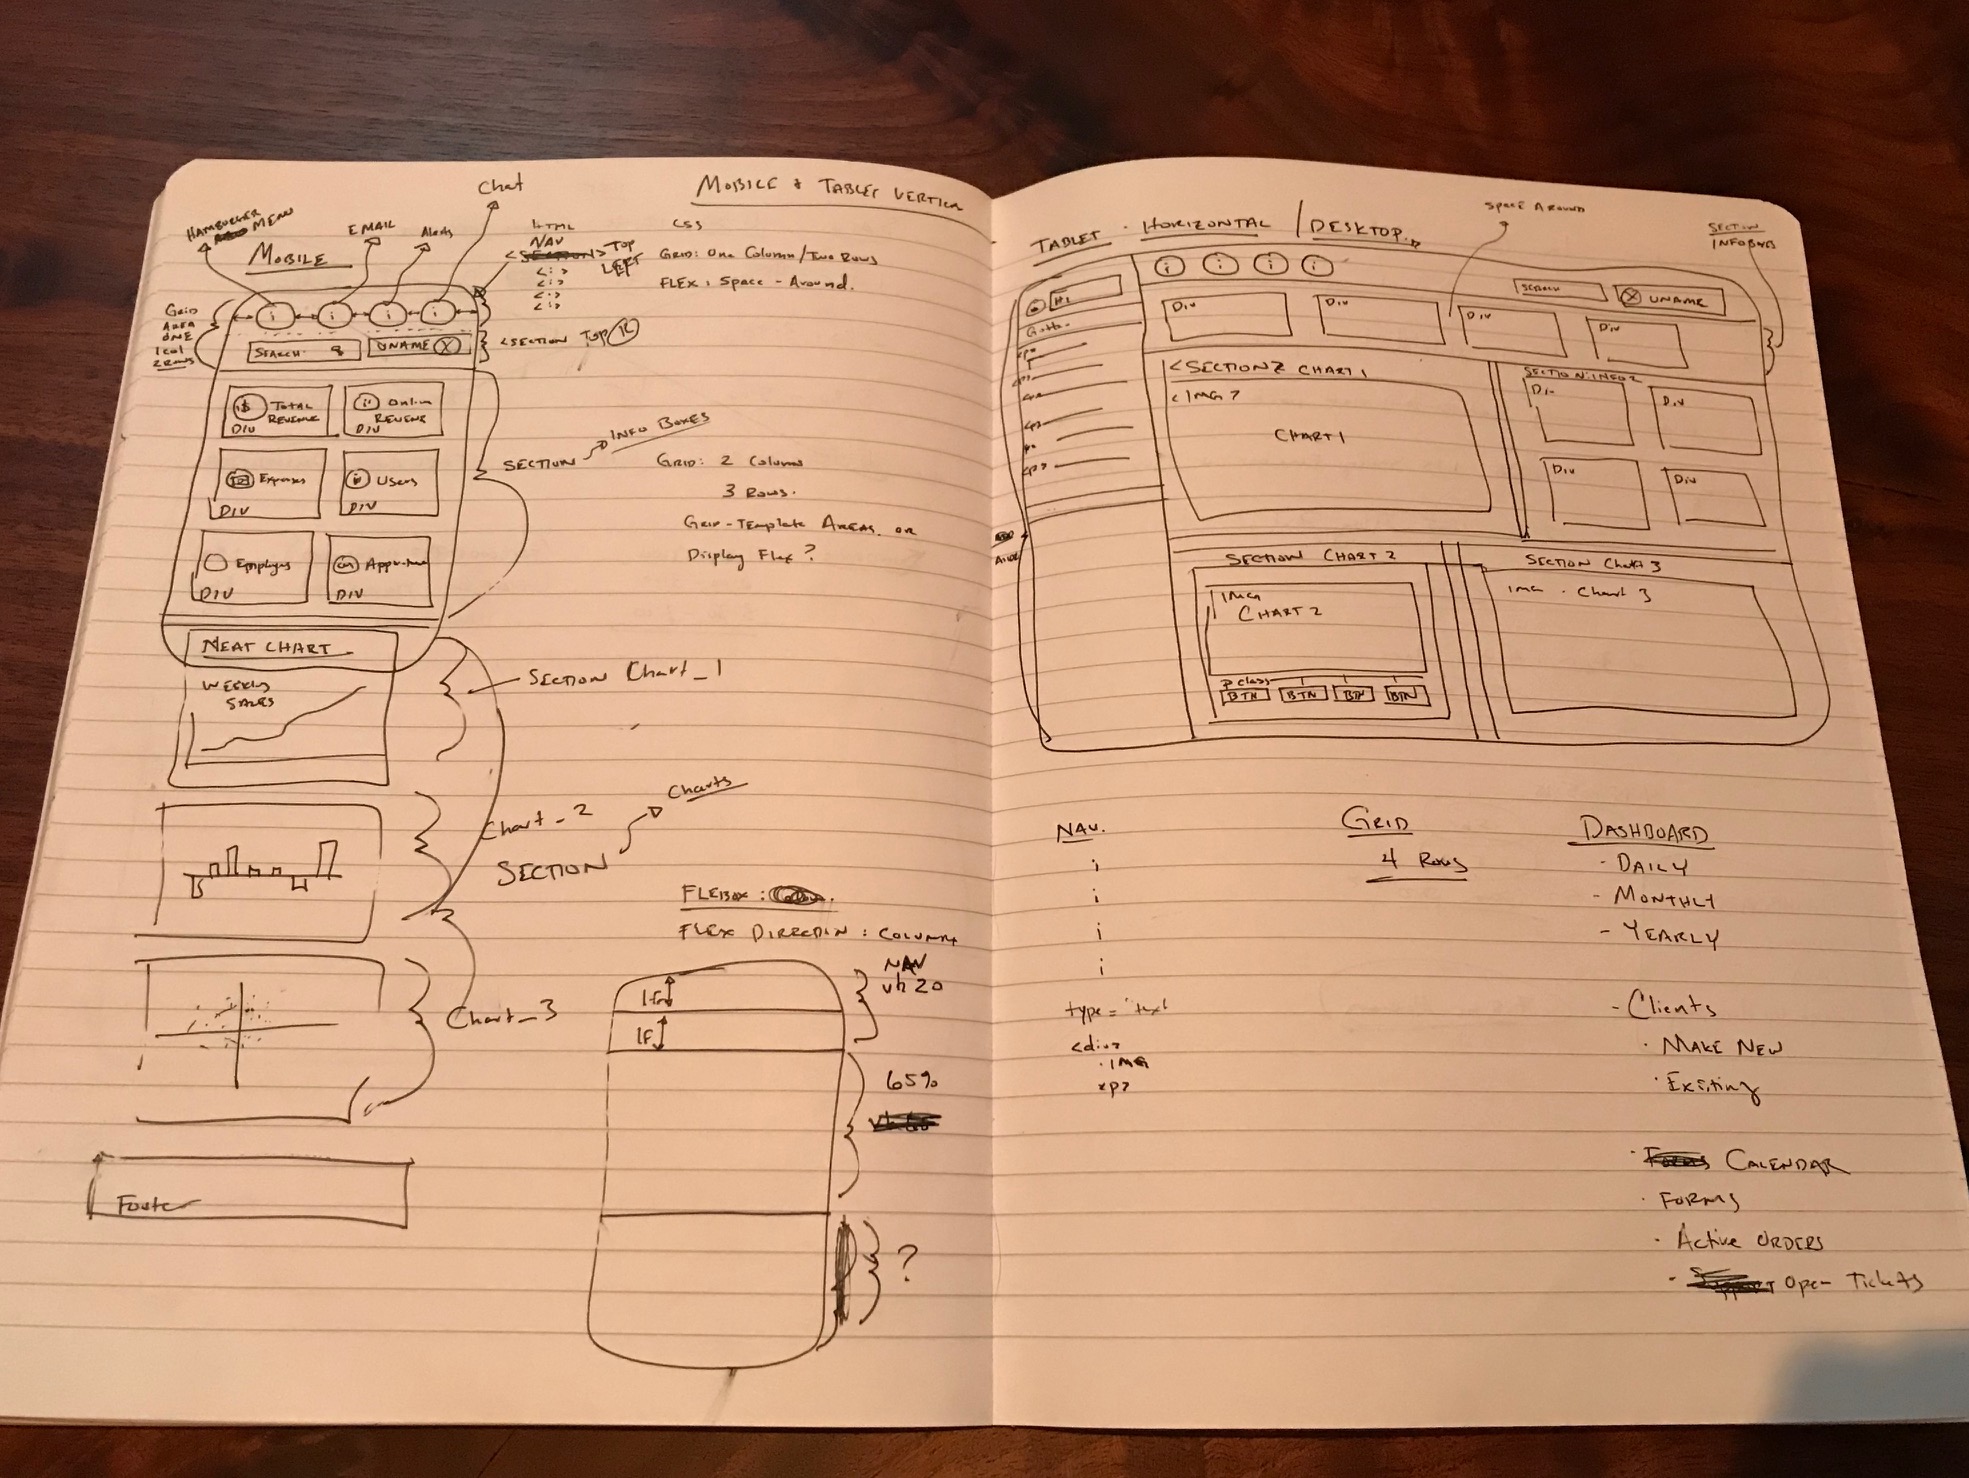 MOBILE & TABLET VERTICAL
Chat
HAMBURGER MENU
EMAIL
Alerts
MOBILE
HTML
NAV
<SECTION> TOP LEFT
<i>
<i>
<i>
<i>
CSS
GRID: One Column/Two Rows
FLEX: Space-Around.
GRID AREA ONE
1 col
2 ROWS
i i i i
SEARCH
UNAME X
<SECTION TOP R
$ TOTAL REVENUE
DIV
i Online REVENUE
DIV
Expenses
DIV
Users
DIV
Employees
DIV
DIV
SECTION
INFO BOXES
GRID: 2 Column
3 Rows.
GRID-Template AREAS. OR
Display Flex?
NEAT CHART
WEEKLY
SALES
SECTION Chart_1
Chart_2
SECTION
Charts
FLEBOX:
FLEX DIRECTION: COLUMN
Chart_3
Footer
1fr
1F
NAV
vh 20
65%
?
TABLET - HORIZONTAL / DESKTOP
Space Around
SECTION
INFOBOXES
Hi
i i i i
SEARCH
X UNAME
Div
Div
Div
Div
<p>
<p>
<p>
<p>
<p>
ASIDE
<SECTION> CHART 1
<IMG>
CHART 1
SECTION: INFO 2
Div
Div
Div
Div
SECTION CHART 2
IMG
CHART 2
p class
BTN BTN BTN BTN
SECTION Chart 3
IMG - Chart 3
NAV.
i
i
i
i
type = "text
<div>
- IMG
<p>
GRID
4 Rows
DASHBOARD
- DAILY
- MONTHLY
- YEARLY
- Clients
· MAKE NEW
· Existing
· CALENDAR
· FORMS
· Active ORDERS
· Open Tickets